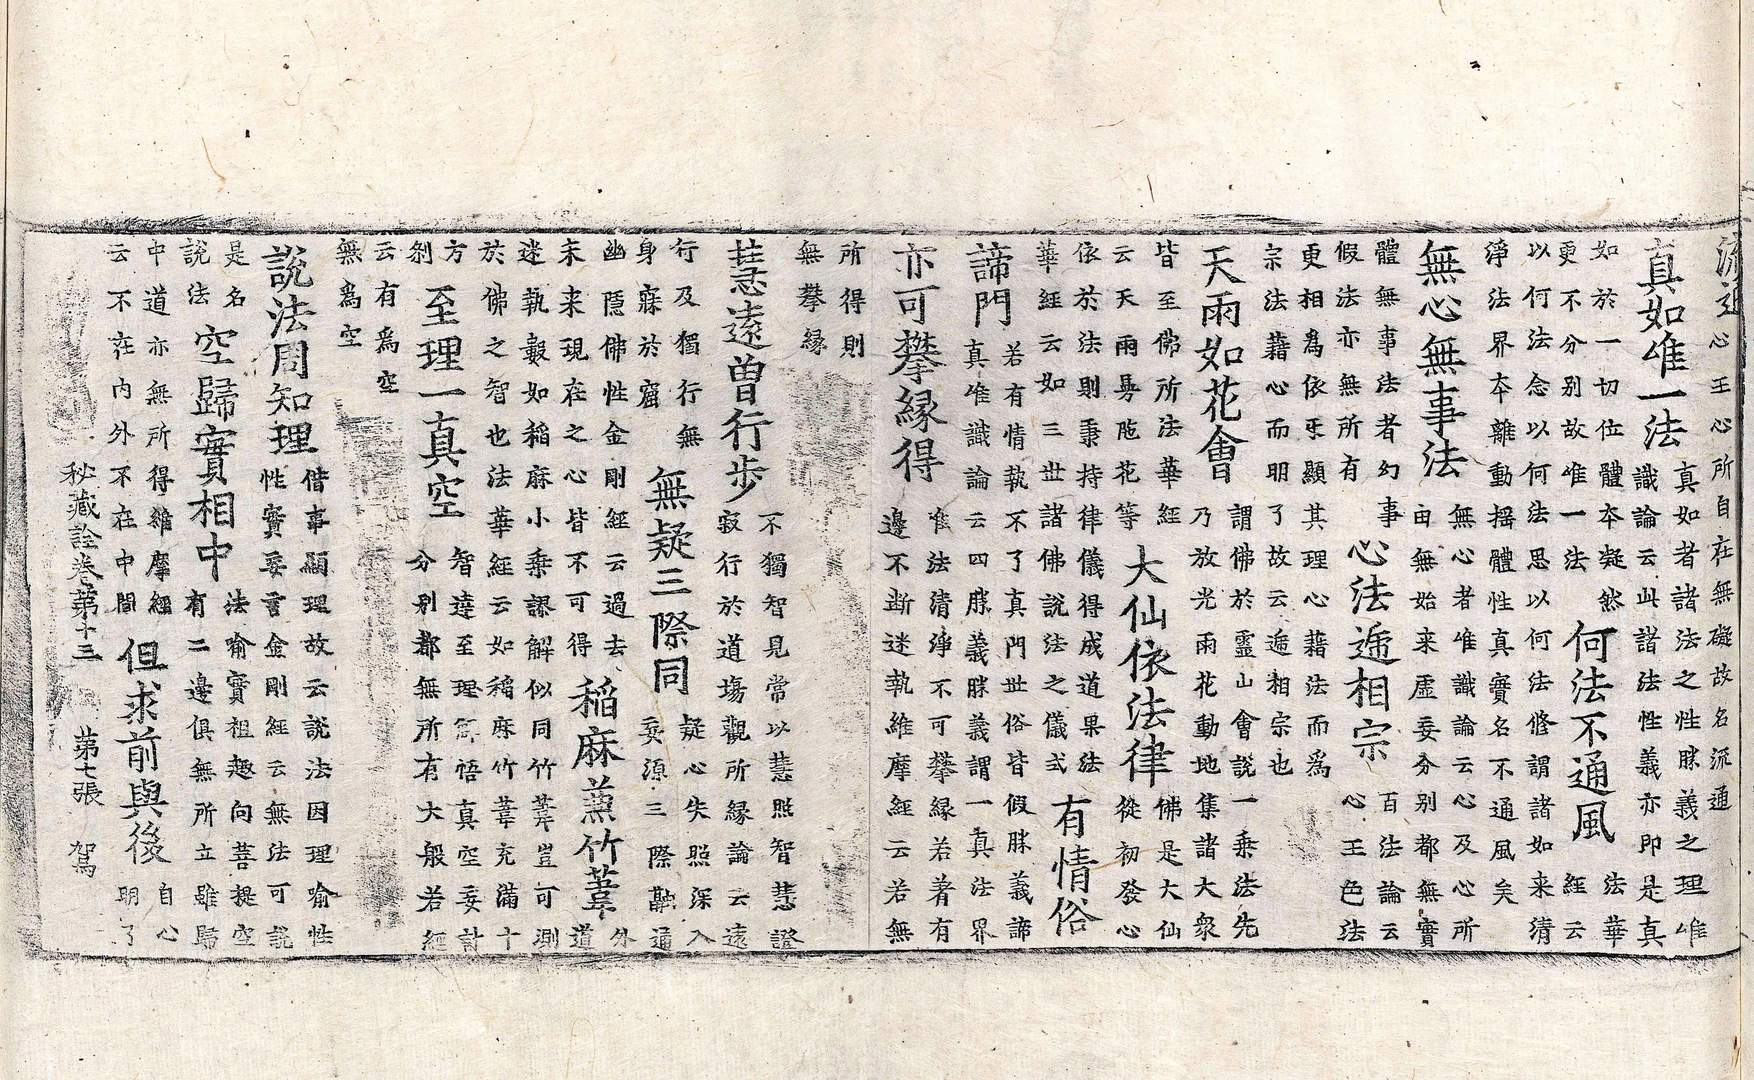 流通心王心所自在無礙故名流通
真如唯一法
真如者諸法之性勝義之理唯
識論云此諸法性義亦即是真
如於一切位體夲疑然
更不分別故唯一法
何法不通風
法華
經云
以何法念以何法思以何法修謂諸如来清
淨法界夲離動揺體性真實名不通風矣
無心無事法
無心者唯識論云心及心所
由無始来虛妄分別都無實
體無事法者幻事
假法亦無所有
心法遞相宗
百法論云
心王色法
更相為依㸦顯其理心藉法而為
宗法藉心而明了故云遞相宗也
天雨如花會
謂佛於靈山會說一乗法先
乃放光雨花動地集諸大衆
皆至佛所法華經
云天雨曼陁花等
大仙依法律
佛是大仙
從初發心
依於法則秉持律儀得成道果法
華經云如三世諸佛說法之儀式
有情俗
諦門
若有情執不了真門世俗皆假勝義諦
真唯識論云四勝義勝義謂一真法界
亦可攀緣得
唯法清淨不可攀緣若著有
邊不断迷執維摩經云若無
所得則
無攀緣
慧遠曾行步
不獨智見常以慧照智慧證
寂行於道場觀所緣論云遠
行及獨行無
身寐於窟
無疑三際同
疑心失照深入
妄源三際融通
幽隱佛性金剛經云過去
未来現在之心皆不可得
稻麻兼竹葦
外
道
迷執轂如稻麻小乗謬解似同竹葦豈可測
於佛之智也法華經云如稻麻竹葦充滿十
方
刹
至理一真空
智達至理悟真空妄計
分別都無所有大般若經
云有為空
無為空
說法周知理
借事顯理故云說法因理喻性
性實妄言金剛經云無法可說
是名
說法
空歸實相中
法喻實祖趣向菩提空
有二邊俱無所立雖歸
中道亦無所得維摩經
云不在内外不在中間
但求前與後
自心
明了
秘藏詮卷第十三 第七張 駕